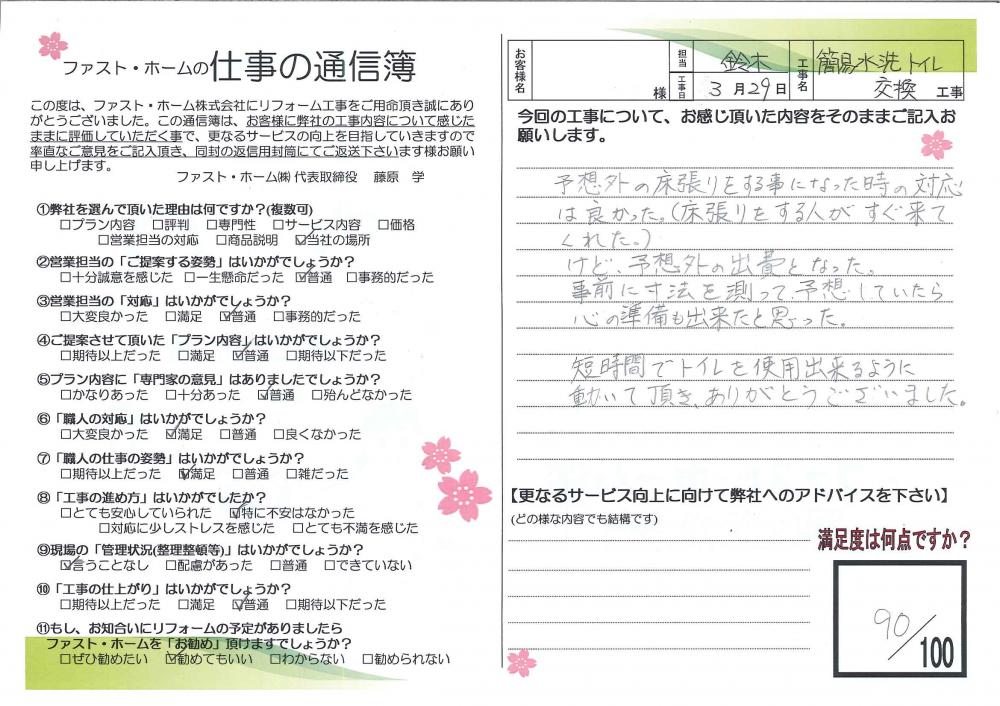 ファスト・ホームの仕事の通信簿
この度は、ファスト・ホーム株式会社にリフォーム工事をご用命頂き誠にあり
がとうございました。この通信簿は、お客様に弊社の工事内容について感じた
ままに評価していただく事で、更なるサービスの向上を目指していきますので
率直なご意見をご記入頂き、同封の返信用封筒にてご返送下さいます様お願い
申し上げます。
ファスト・ホーム㈱ 代表取締役 藤原 学
①弊社を選んで頂いた理由は何ですか?(複数可)
□プラン内容 □評判 □専門性 □サービス内容 □価格
□営業担当の対応 □商品説明 ☑当社の場所
②営業担当の「ご提案する姿勢」はいかがでしょうか?
□十分誠意を感じた □一生懸命だった ☑普通 □事務的だった
③営業担当の「対応」はいかがでしょうか?
□大変良かった □満足 ☑普通 □事務的だった
④ご提案させて頂いた「プラン内容」はいかがでしょうか?
□期待以上だった □満足 ☑普通 □期待以下だった
⑤プラン内容に「専門家の意見」はありましたでしょうか?
□かなりあった □十分あった ☑普通 □殆んどなかった
⑥「職人の対応」はいかがでしょうか?
□大変良かった ☑満足 □普通 □良くなかった
⑦「職人の仕事の姿勢」はいかがでしょうか?
□期待以上だった ☑満足 □普通 □雑だった
⑧「工事の進め方」はいかがでしたか?
□とても安心していられた ☑特に不安はなかった
□対応に少しストレスを感じた □とても不満を感じた
⑨現場の「管理状況(整理整頓等)」はいかがでしょうか?
☑言うことなし □配慮があった □普通 □できていない
⑩「工事の仕上がり」はいかがでしょうか?
□期待以上だった □満足 ☑普通 □期待以下だった
⑪もし、お知合いにリフォームの予定がありましたら
ファスト・ホームを「お勧め」頂けますでしょうか?
□ぜひ勧めたい ☑勧めてもいい □わからない □勧められない
お客様名 様 担当 鈴木 工事日 3月29日 工事名 簡易水洗トイレ
交換 工事
今回の工事について、お感じ頂いた内容をそのままご記入お
願いします。
予想外の床張りをする事になった時の対応
は良かった。(床張りをする人がすぐ来て
くれた。)
けど、予想外の出費となった。
事前に寸法を測って予想していたら
心の準備も出来たと思った。
短時間でトイレを使用出来るように
動いて頂き、ありがとうございました。
【更なるサービス向上に向けて弊社へのアドバイスを下さい】
(どの様な内容でも結構です)
満足度は何点ですか?
90/100